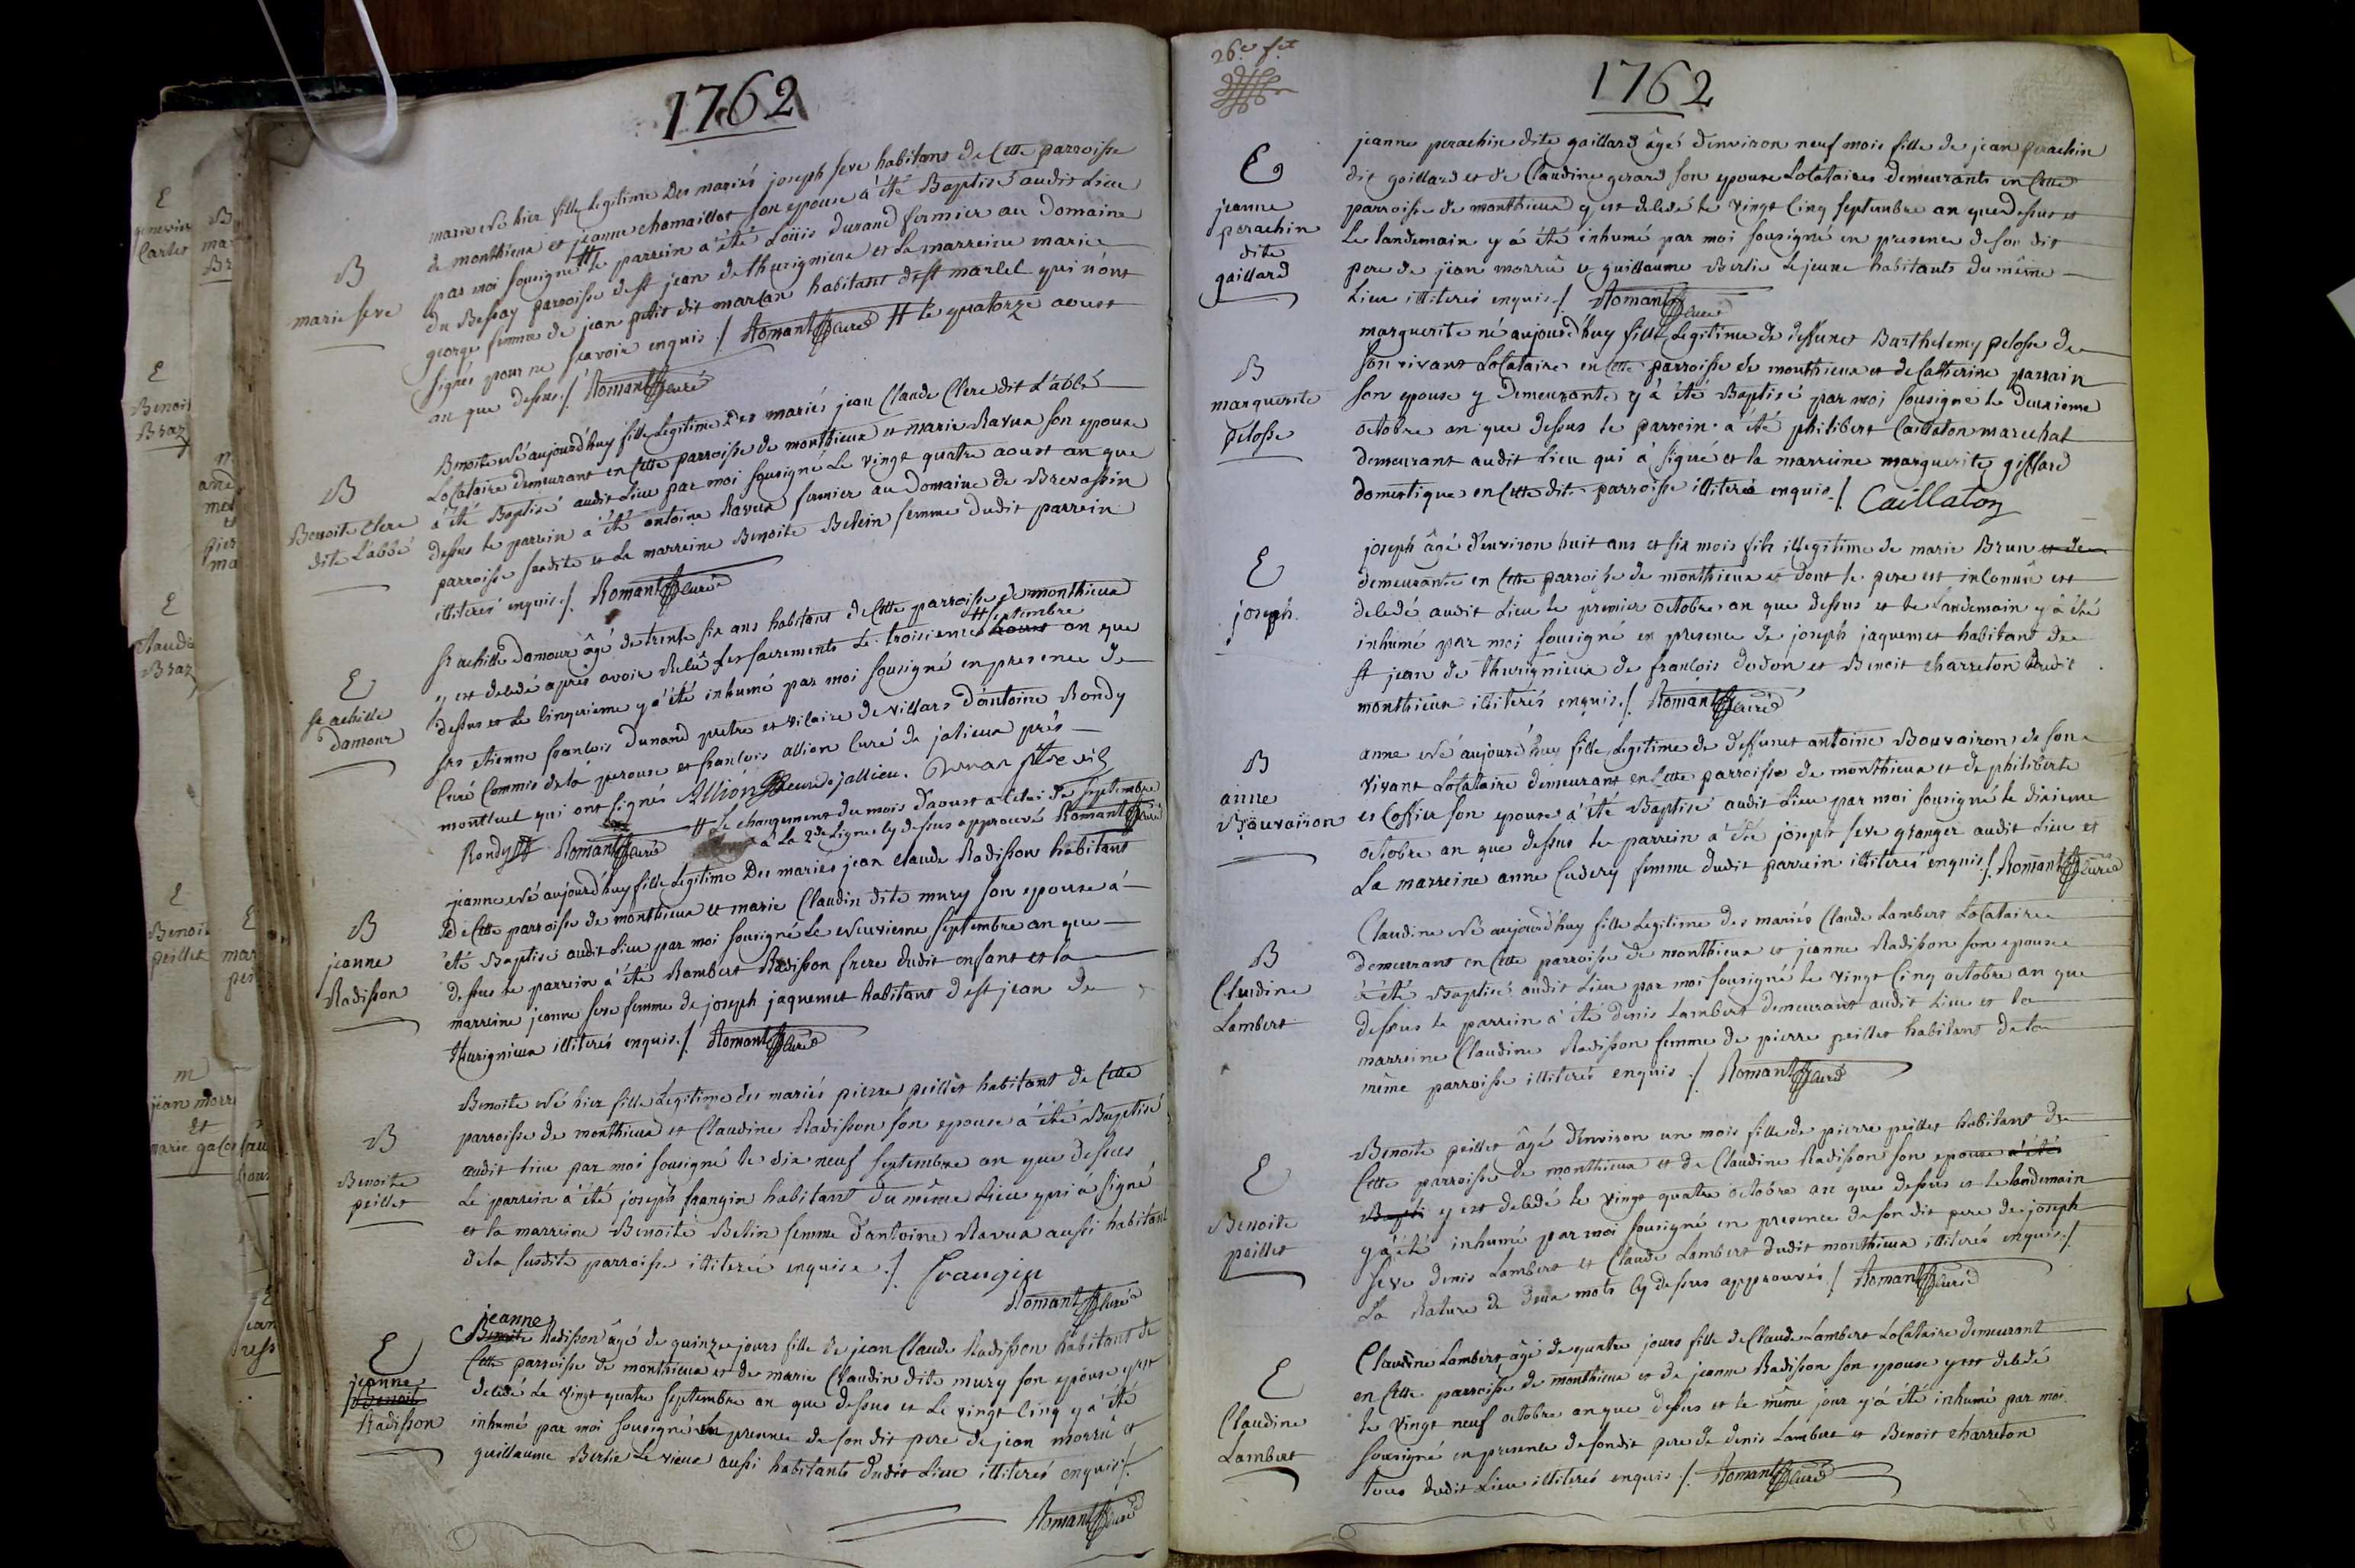 1762
B
marie seve
marie né hier fille legitime des mariés joseph seve habitant de cette parroisse
de monthieux et jeanne chomaillot son epouse a été Baptisé audit Lieu
par moi sousigné # le parrein a été Loüis durand fermier au domaine
du Bessay parroisse de st jean de thurignieux et La marreine marie
george femme de jean petit dit marlan habitant de st marcel qui n'ont
signés pour ne sçavoir enquis ./ Romant curé # le quatorze aoust
an que dessus ./ Romant curé
B
Benoite clere
dite L'abbé
Benoite né aujourd'huy fille legitime des mariés jean Claude Clere dit L'abbé
Locataire demeurant en cette parroisse de monthieux et marie Ravux son epouse
a été Baptisé audit Lieu par moi sousigné Le vingt quatre aoust an que
dessus le parrein a été antoine Ravux fermier au domaine de Brevassin
parroisse susdite et La marreine Benoite Belein femme dudit parrein
illiterés enquis ./ Romant curé
E
sr achille
damour
sr achille damour âgé de trente six ans habitant de cette parroisse de monthieux
# septembre
y est decedé après avoir Relû Les sacrements Le troisieme aoust an que
dessus et Le cinquieme y a été inhumé par moi sousigné en presence de
srs etienne françois dunand pretre et vicaire de villars d'antoine Rondy
curé commis de la perouse et françois allion curé de jalieux près
montluel qui ont signés Allion curé de jallieu. Dunan ptre vic
Rondy Romant curé # Le changement du mois d'aoust a celui de septembre
a La 2de Ligne cy dessus approuvé Romant curé
B
jeanne
Radisson
jeanne né aujourd'huy fille legitime des mariés jean claude Radisson habitant
de cette parroisse de monthieux et marie Claudin dite mury son epouse a
été Baptisé audit Lieu par moi sousigné Le neuvieme septembre an que
dessus le parrein a été Rambert Radisson frere dudit enfant et la
marreine jeanne seve femme de joseph jaquemet habitant de st jean de
thurignieux illiterés enquis ./ Romant curé
B
Benoite
peillet
Benoite né hier fille Legitime des mariés pierre peillet habitant de cette
parroisse de monthieux et Claudine Radisson son epouse a été Baptisé
audit Lieu par moi sousigné le dix neuf septembre an que dessus
Le parrein a été joseph frangin habitant du même Lieu qui a signé
et la marreine Benoite Belin femme d'antoine Ravux aussi habitant
de la susdite parroisse illiteré enquise ./ frangin
Romant curé
E
jeanne
Benoit
Radisson
jeanne
Benoite Radisson âgé de quinze jours fille de jean Claude Radisson habitant de
Cette parroisse de monthieux et de marie Claudin dite mury son epouse y est
decedé Le vingt quatre septembre an que dessus et Le vingt cinq y a été
inhumé par moi sousigné en presence de son dit pere de jean morrû et
guillaume Berlie Le vieux aussi habitants dudit Lieu illiterés enquis ./
Romant curé
26e ft
1762
E
jeanne
perachin
dite
gaillard
jeanne perachin dite gaillard âgé d'environ neuf mois fille de jean perachin
dit gaillard et de Claudine gerard son epouse Locataires demeurants en cette
parroisse de monthieux y est decedé le vingt cinq septembre an que dessus et
Le landemain y a été inhumé par moi sousigné en presence de son dit
pere de jean morrû et guillaume Berlie Le jeune habitants du même
Lieu illiterés enquis ./ Romant curé
B
marguerite
pelosse
marguerite né aujourd'huy fille Legitime de deffunct Barthelemy pelosse de
son vivant Locataire en cette parroisse de monthieux et de Catherine parrain
son epouse y demeurante y a été Baptisé par moi sousigné le deuxieme
octobre an que dessus le parrein a été philibert Caillaton marechal
demeurant audit Lieu qui a signé et la marreine marguerite giffard
domestique en cette dite parroisse illiterée enquis ./ Caillaton
E
joseph
joseph âgé d'environ huit ans et six mois fils illegitime de marie Brun et de
demeurante en cette parroisse de monthieux et dont le pere est inconnû est
decedé audit Lieu le premier octobre an que dessus et le Landemain y a été
inhumé par moi sousigné en presence de joseph jaquemet habitant de
st jean de thurignieux de françois dodon et Benoit charreton dudit
monthieux illiterés enquis ./ Romant curé
B
anne
Bouvairon
anne né aujourd'huy fille Legitime de deffunct antoine Bouvairon de son
vivant Locataire demeurant en cette parroisse de monthieux et de philiberte
es Coffier son epouse a été Baptisé audit Lieu par moi sousigné le dixieme
octobre an que dessus le parrein a été joseph seve granger audit Lieu et
La marreine anne Cudery femme dudit parrein illiterés enquis ./ Romant curé
B
Claudine
Lambert
Claudine né aujourd'huy fille Legitime des mariés Claude Lambert Locataire
demeurant en cette parroisse de monthieux et jeanne Radisson son epouse
a été Baptisé audit Lieu par moi sousigné le vingt cinq octobre an que
dessus le parrein a été denis Lambert demeurant audit Lieu et la
marreine Claudine Radisson femme de pierre peillet habitant de la
même parroisse illiterés enquis ./ Romant curé
E
Benoite
peillet
Benoite peillet âgé d'environ un mois fille de pierre peillet habitant de
Cette parroisse de monthieux et de Claudine Radisson son epouse a été
Bapti y est decedé le vingt quatre octobre an que dessus et le landemain
y a été inhumé par moi sousigné en presence de son dit pere de joseph
seve denis Lambert et Claude Lambert dudit monthieux illiterés enquis ./
La Rature de deux mots cy dessus approuvés ./ Romant curé
E
Claudine
Lambert
Claudine Lambert âgé de quatre jours fille de Claude Lambert Locataire demeurant
en cette parroisse de monthieux et de jeanne Radisson son epouse y est decedé
le vingt neuf octobre an que dessus et le même jour y a été inhumé par moi
sousigné en presence de son dit pere de denis Lambert et Benoit charreton
tous dudit Lieu illiterés enquis ./ Romant curé